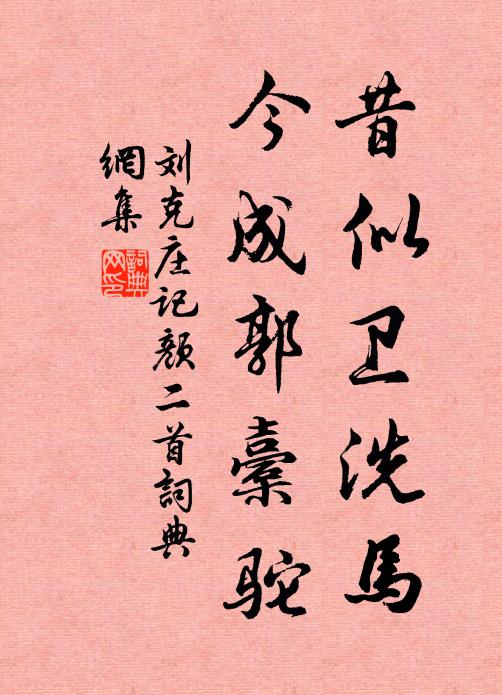 昔似卫洗馬
今成郭橐駝
刘克庄记颜二首詞典
網集
詞典
网印